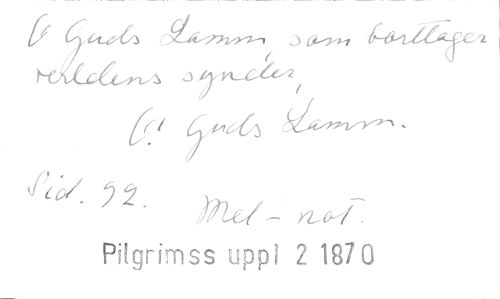 O Guds Lamm, som borttager
verldens synder,
O! Guds Lamm.
Sid. 92.
Mel-not.
Pilgrimss uppl 2 1870